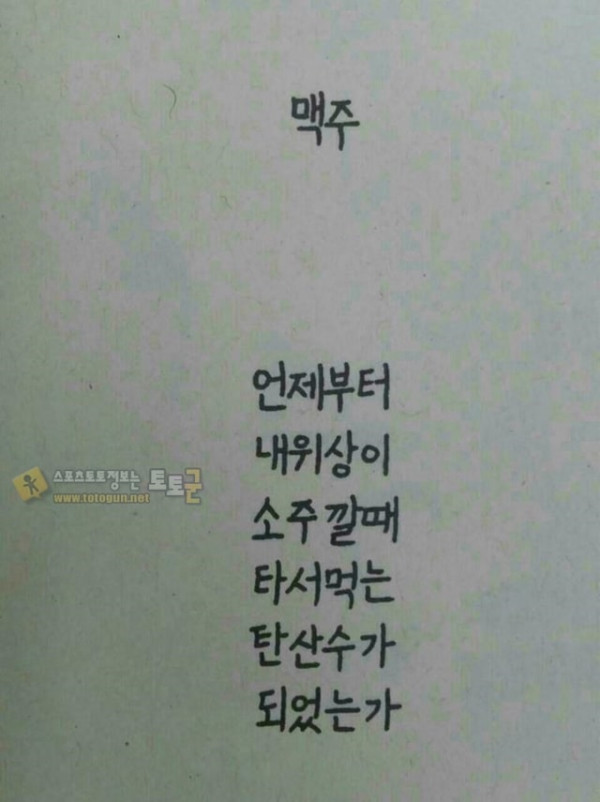 맥주
언제부터
내위상이
소주깔때
타서먹는
탄산수가
되었는가
스포츠토토정보는 토토군
www.totogun.net